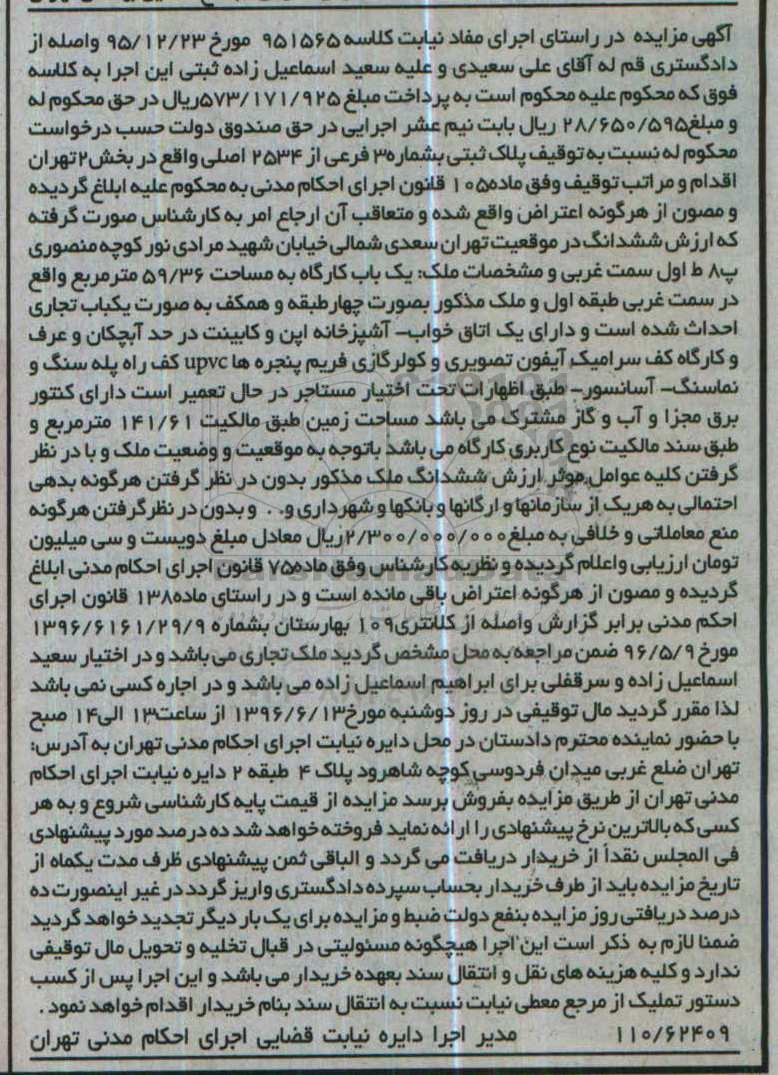 آگهی مزایده در راستای اجرای مفاد نیابت کلاسه ۹۵۱۵۶۵ مورخ ۹۵/۱۲/۲۳ واصله از
دادگستری قم له آقای علی سعیدی و علیه سعید اسماعیل زاده ثبتی این اجرا به کلاسه
فوق که محکوم علیه محکوم است به پرداخت مبلغ ۵۷۳/۱۷۱/۹۲۵ریال در حق محکوم له
و مبلغ۲۸/۶۵۰/۵۹۵ ریال بابت نیم عشر اجرایی در حق صندوق دولت حسب درخواست
محکوم له نسبت به توقیف پلاک ثبتی بشماره۳ فرعی از ۲۵۳۴ اصلی واقع در بخش۲تهران
اقدام و مراتب توقیف وفق ماده۱۰۵ قانون اجرای احکام مدنی به محکوم علیه ابلاغ گردیده
و مصون از هرگونه اعتراض واقع شده و متعاقب آن ارجاع امر به کارشناس صورت گرفته
که ارزش ششدانگ در موقعیت تهران سعدی شمالی خیابان شهید مرادی نور کوچه منصوری
پ۸ ط اول سمت غربی و مشخصات ملک: یک باب کارگاه به مساحت ۵۹/۳۶ مترمربع واقع
در سمت غربی طبقه اول و ملک مذکور بصورت چهارطبقه و همکف به صورت یکباب تجاری
احداث شده است و دارای یک اتاق خواب– آشپزخانه اپن و کابینت در حد آبچکان و عرف
و کارگاه کف سرامیک آیفون تصویری و کولرگازی فریم پنجره ها upvc کف راه پله سنگ و
نماسنگ– آسانسور– طبق اظهارات تحت اختیار مستاجر در حال تعمیر است دارای کنتور
برق مجزا و آب و گاز مشترک می باشد مساحت زمین طبق مالکیت ۱۴۱/۶۱ مترمربع و
طبق سند مالکیت نوع کاربری کارگاه می باشد باتوجه به موقعیت و وضعیت ملک و با در نظر
گرفتن کلیه عوامل موثر ارزش ششدانگ ملک مذکور بدون در نظر گرفتن هرگونه بدهی
احتمالی به هریک از سازمانها و ارگانها و بانکها و شهرداری و. . و بدون در نظرگرفتن هرگونه
منع معاملاتی و خلافی به مبلغ۲/۳۰۰/۰۰۰/۰۰۰ریال معادل مبلغ دویست و سی میلیون
تومان ارزیابی واعلام گردیده و نظریه کارشناس وفق ماده۷۵ قانون اجرای احکام مدنی ابلاغ
گردیده و مصون از هرگونه اعتراض باقی مانده است و در راستای ماده۱۳۸ قانون اجرای
احکم مدنی برابر گزارش واصله از کلانتری۱۰۹ بهارستان بشماره ۱۳۹۶/۶۱۶۱/۲۹/۹
مورخ ۹۶/۵/۹ ضمن مراجعه به محل مشخص گردید ملک تجاری می باشد و در اختیار سعید
اسماعیل زاده و سرقفلی برای ابراهیم اسماعیل زاده می باشد و در اجاره کسی نمی باشد
لذا مقرر گردید مال توقیفی در روز دوشنبه مورخ۱۳۹۶/۶/۱۳ از ساعت۱۳ الی۱۴ صبح
با حضور نماینده محترم دادستان در محل دایره نیابت اجرای احکام مدنی تهران به آدرس:
تهران ضلع غربی میدان فردوسی کوچه شاهرود پلاک ۴ طبقه ۲ دایره نیابت اجرای احکام
مدنی تهران از طریق مزایده بفروش برسد مزایده از قیمت پایه کارشناسی شروع و به هر
کسی که بالاترین نرخ پیشنهادی را ارائه نماید فروخته خواهد شد ده درصد مورد پیشنهادی
فی المجلس نقداً از خریدار دریافت می گردد و الباقی ثمن پیشنهادی ظرف مدت یکماه از
تاریخ مزایده باید از طرف خریدار بحساب سپرده دادگستری واریز گردد در غیر اینصورت ده
درصد دریافتی روز مزایده بنفع دولت ضبط و مزایده برای یک بار دیگر تجدید خواهد گردید
ضمنا لازم به ذکر است این اجرا هیچگونه مسئولیتی در قبال تخلیه و تحویل مال توقیفی
ندارد و کلیه هزینه های نقل و انتقال سند بعهده خریدار می باشد و این اجرا پس از کسب
دستور تملیک از مرجع معطی نیابت نسبت به انتقال سند بنام خریدار اقدام خواهد نمود .
۱۱۰/۶۲۴۰۹ مدیر اجرا دایره نیابت قضایی اجرای احکام مدنی تهران